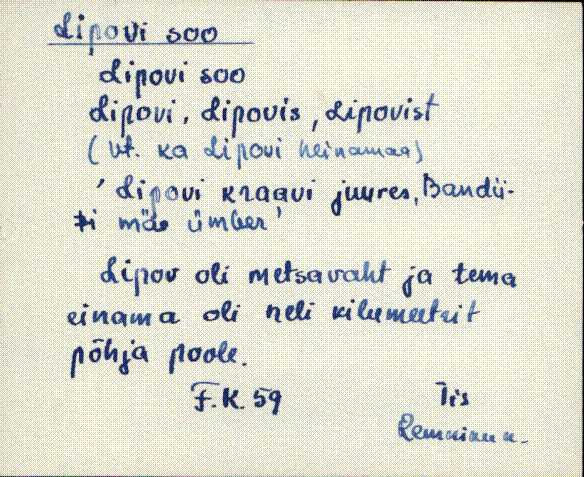 Lipovi soo
Lipovi soo
Lipovi, Lipovis, Lipovist
(vt. ka Lipovi heinamaa)
'Lipovi kraavi juures, Bandü-
ti mäe ümber'
Lipov oli metsavaht ja tema
einama oli neli kilumeetrit
põhja poole.
F.K. 59
Iis